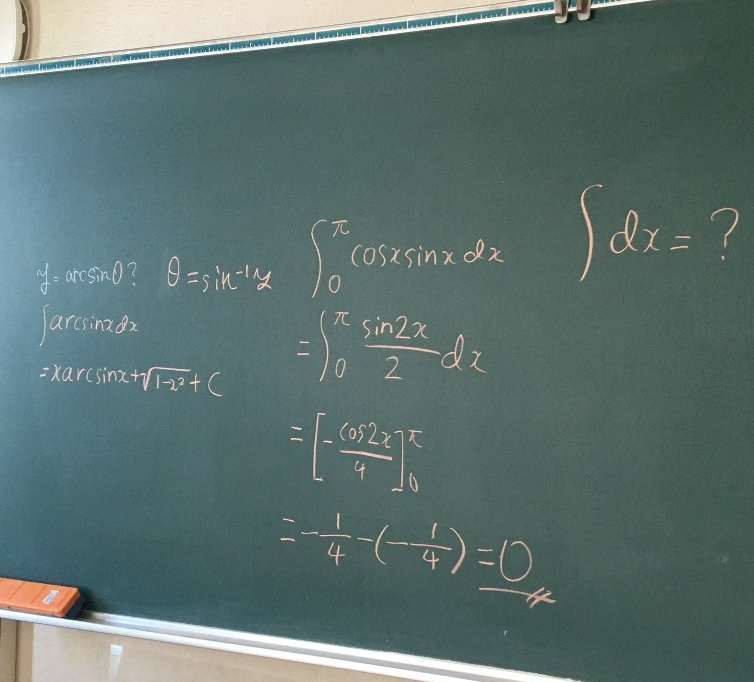 y=arcsinθ? θ=sin⁻¹y
∫arcsinxdx
=xarcsinx+√(1-x²)+C
∫₀^π cosxsinxdx
=∫₀^π sin2x/2 dx
=[-cos2x/4]₀^π
=-1/4-(-1/4)=0
∫dx=?